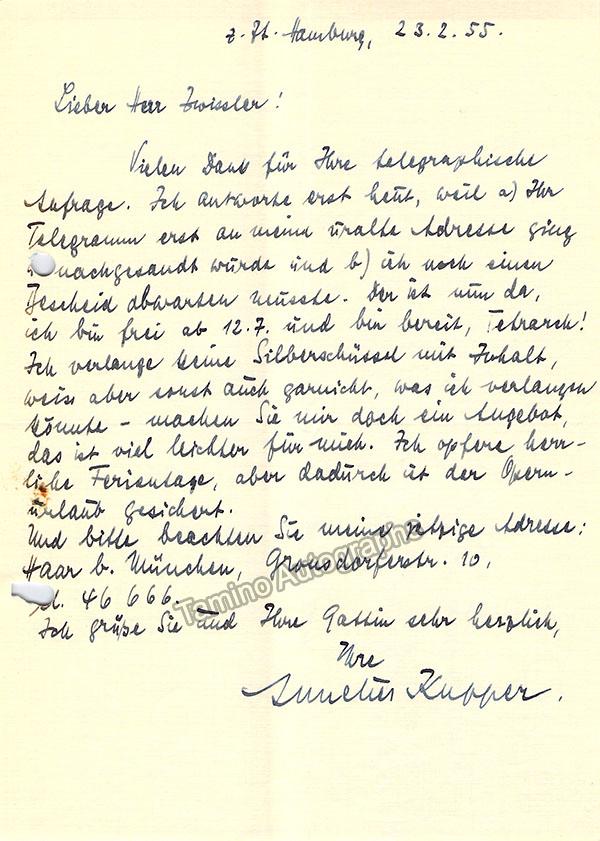 z. Zt. Hamburg, 23.2.55.
Lieber Herr Zwissler!
Vielen Dank für Ihre telegraphische
Anfrage. Ich antworte erst heut, weil a) Ihr
Telegramm erst an meine uralte Adresse ging
nachgesandt wurde und b) ich noch einen
Bescheid abwarten musste. Der ist nun da,
ich bin frei ab 12.7. und bin bereit, Tetrarch!
Ich verlange keine Silberschüssel mit Inhalt,
weiss aber sonst auch garnicht, was ich verlangen
könnte – machen Sie mir doch ein Angebot,
das ist viel leichter für mich. Ich opfere herr-
liche Ferientage, aber dadurch ist der Opern-
urlaub gesichert.
Und bitte beachten Sie meine jetzige Adresse:
Haar b. München, Gronsdorferstr. 10,
Tel. 46 666.
Ich grüße Sie und Ihre Gattin sehr herzlich,
Ihre
Annelies Kupper.
Tamino Autographs